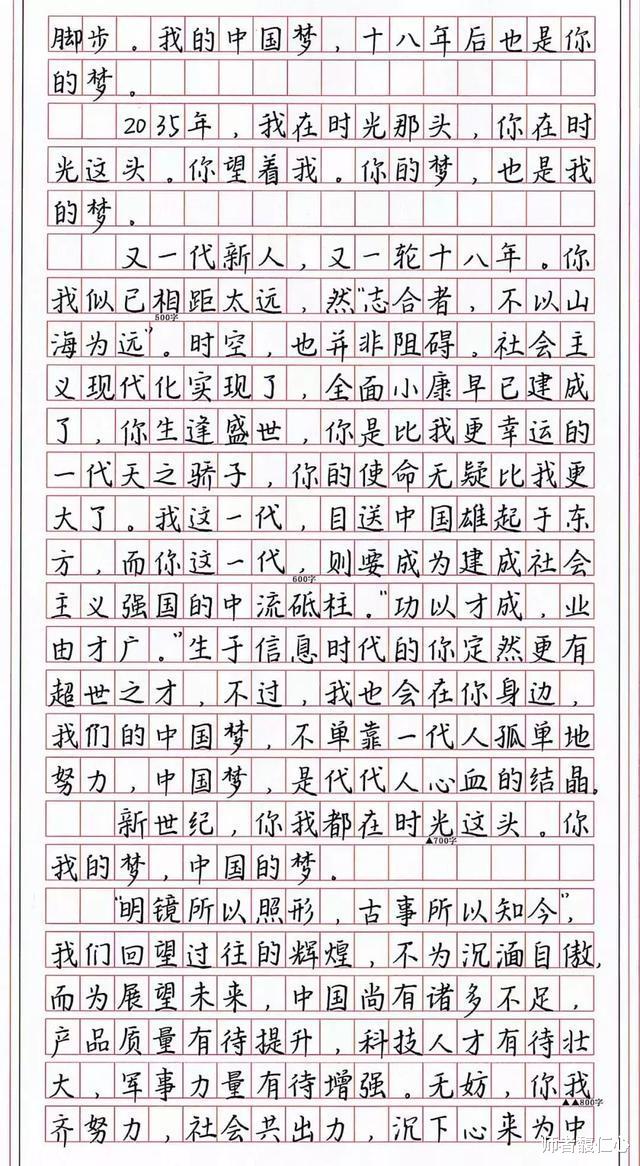 脚步。我的中国梦，十八年后也是你
的梦。
2035年，我在时光那头，你在时
光这头。你望着我。你的梦，也是我
的梦。
又一代新人，又一轮十八年。你
我似已相距太远，然“志合者，不以山
500字
海为远”。时空，也并非阻碍。社会主
义现代化实现了，全面小康早已建成
了，你生逢盛世，你是比我更幸运的
一代天之骄子，你的使命无疑比我更
大了。我这一代，目送中国雄起于东
方，而你这一代，则要成为建成社会
600字
主义强国的中流砥柱。“功以才成，业
由才广。”生于信息时代的你定然更有
超世之才，不过，我也会在你身边，
我们的中国梦，不单靠一代人孤单地
努力，中国梦，是代代人心血的结晶。
新世纪，你我都在时光这头。你
▲700字
我的梦，中国的梦。
“明镜所以照形，古事所以知今”，
我们回望过往的辉煌，不为沉湎自傲，
而为展望未来，中国尚有诸多不足，
产品质量有待提升，科技人才有待壮
大，军事力量有待增强。无妨，你我
▲▲800字
齐努力，社会共出力，沉下心来为中
师者馥仁心